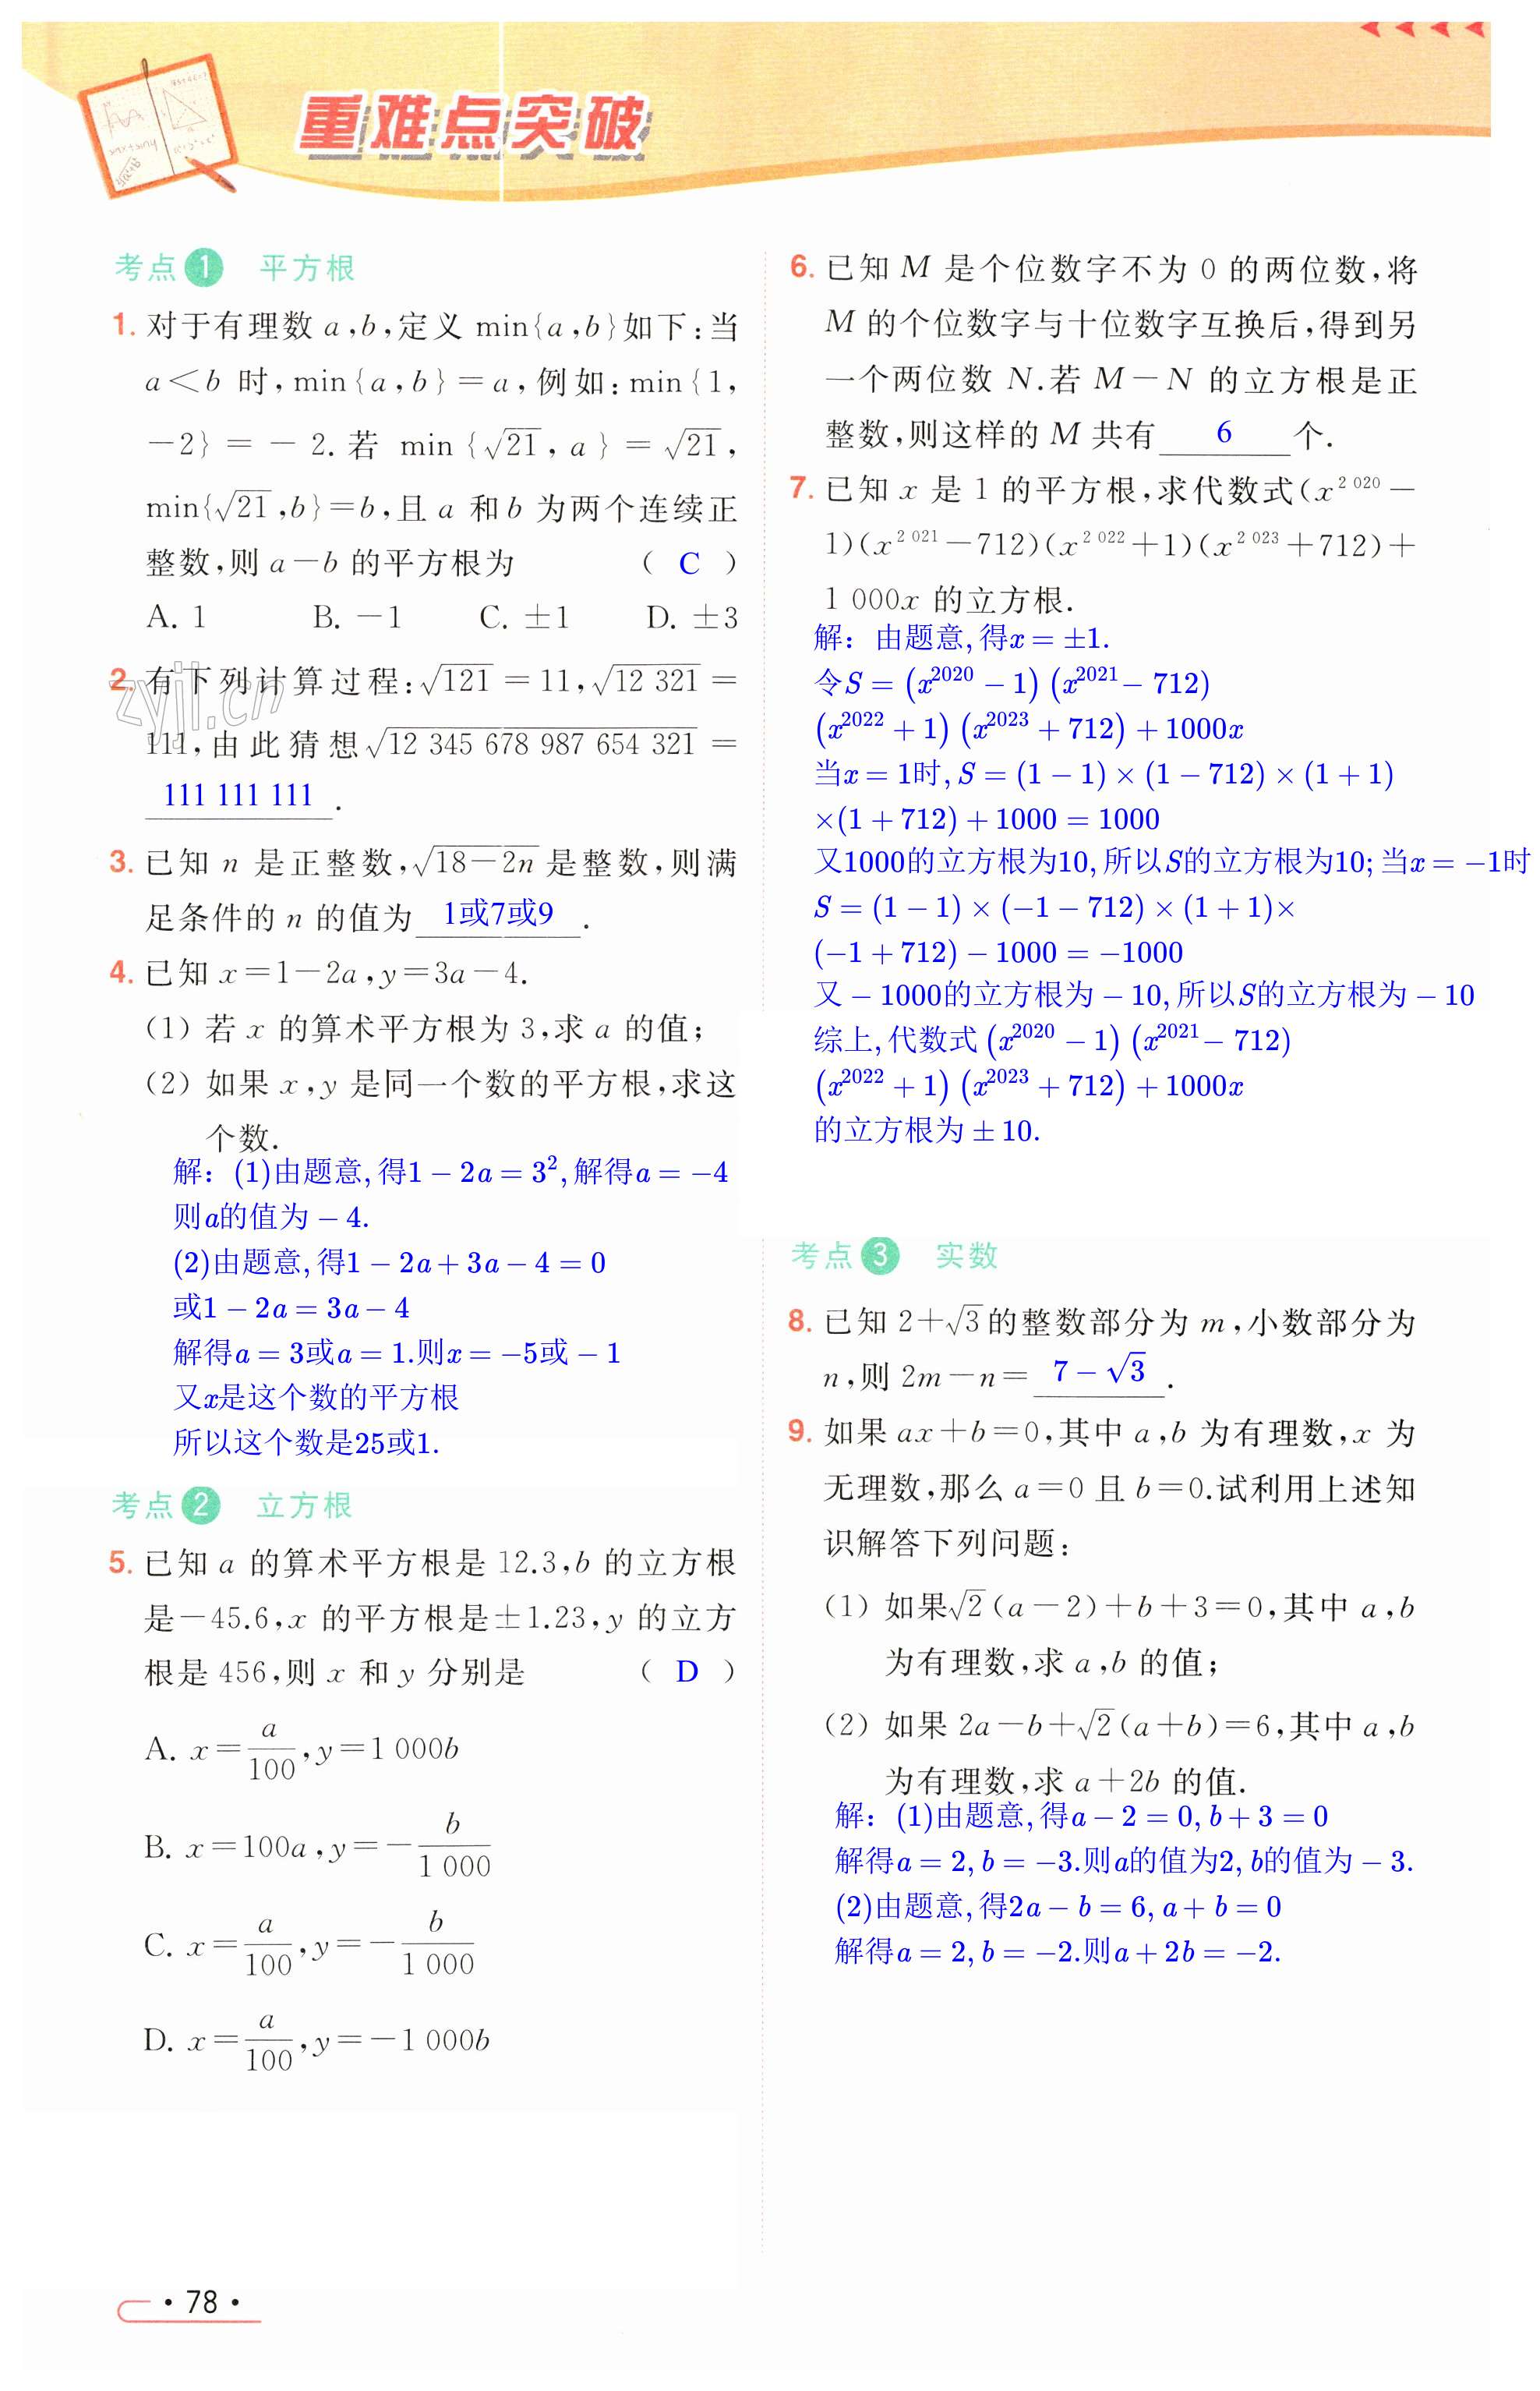 重难点突破
考点1 平方根
1. 对于有理数 a,b,定义 min{a,b}如下:当
a<b 时,min{a,b}=a,例如:min{1,
-2}=-2.若 min{√21,a}=√21,
min{√21,b}=b,且 a 和 b 为两个连续正
整数,则 a-b 的平方根为 ( C )
A. 1 B. -1 C. ±1 D. ±3
2. 有下列计算过程:√121=11,√12 321=
111,由此猜想√12 345 678 987 654 321=
111 111 111 .
zyjl.cn
3. 已知 n 是正整数,√18-2n 是整数,则满
足条件的 n 的值为 1或7或9 .
4. 已知 x=1-2a,y=3a-4.
(1) 若 x 的算术平方根为 3,求 a 的值;
(2) 如果 x,y 是同一个数的平方根,求这
个数.
解: (1)由题意,得1-2a=3²,解得a=-4
则a的值为-4.
(2)由题意,得1-2a+3a-4=0
或1-2a=3a-4
解得a=3或a=1.则x=-5或-1
又x是这个数的平方根
所以这个数是25或1.
考点2 立方根
5. 已知 a 的算术平方根是 12.3,b 的立方根
是-45.6,x 的平方根是±1.23,y 的立方
根是 456,则 x 和 y 分别是 ( D )
A. x=a/100,y=1 000b
B. x=100a,y=-b/1 000
C. x=a/100,y=-b/1 000
D. x=a/100,y=-1 000b
6. 已知 M 是个位数字不为 0 的两位数,将
M 的个位数字与十位数字互换后,得到另
一个两位数 N.若 M-N 的立方根是正
整数,则这样的 M 共有 6 个.
7. 已知 x 是 1 的平方根,求代数式(x^2 020-
1)(x^2 021-712)(x^2 022+1)(x^2 023+712)+
1 000x 的立方根.
解: 由题意,得x=±1.
令S=(x^2020-1)(x^2021-712)
(x^2022+1)(x^2023+712)+1000x
当x=1时,S=(1-1)×(1-712)×(1+1)
×(1+712)+1000=1000
又1000的立方根为10,所以S的立方根为10;当x=-1时
S=(1-1)×(-1-712)×(1+1)×
(-1+712)-1000=-1000
又-1000的立方根为-10,所以S的立方根为-10
综上,代数式(x^2020-1)(x^2021-712)
(x^2022+1)(x^2023+712)+1000x
的立方根为±10.
考点3 实数
8. 已知 2+√3的整数部分为 m,小数部分为
n,则 2m-n= 7-√3 .
9. 如果 ax+b=0,其中 a,b 为有理数,x 为
无理数,那么 a=0 且 b=0.试利用上述知
识解答下列问题:
(1) 如果√2(a-2)+b+3=0,其中 a,b
为有理数,求 a,b 的值;
(2) 如果 2a-b+√2(a+b)=6,其中 a,b
为有理数,求 a+2b 的值.
解: (1)由题意,得a-2=0,b+3=0
解得a=2,b=-3.则a的值为2,b的值为-3.
(2)由题意,得2a-b=6,a+b=0
解得a=2,b=-2.则a+2b=-2.
• 78 •